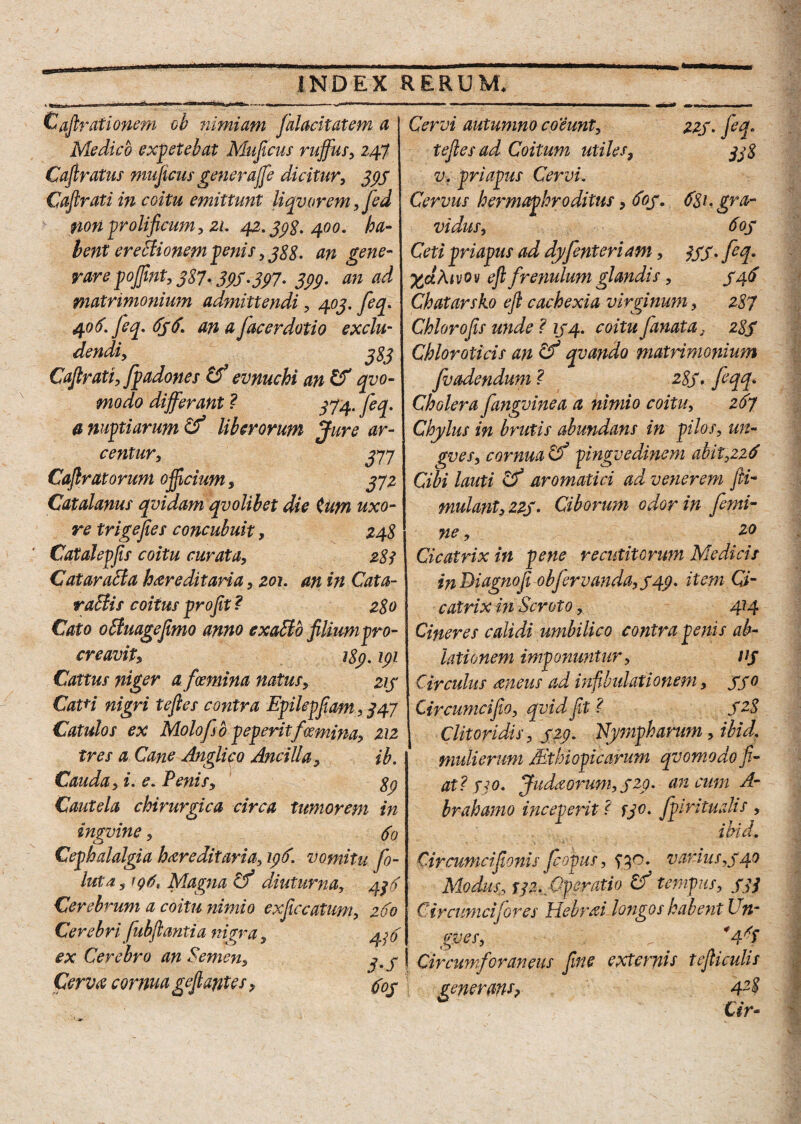 INDEX RERUM.
Caſtrationem ob nimiam ſalacitatem a
Medico expetebat Muſicus ruffus, 247
Caſtratus muſicus generaſſe dicitur, 395
Caſtrati in coitu emittunt liqvorem, ſed
non prolificum, 21. 42. 398. 400. ha-
bent erectionem penis, 388. an gene-
rare poſſint, 387. 395. 397. 399. an ad
matrimonium admittendi, 403. ſeq.
406. ſeq. 656. an a ſacerdotio exclu-
dendi, 383
Caſtrati, ſpadones & evnuchi an & qvo-
modo differant? 374. ſeq.
a nuptiarum & liberorum Jure ar-
centur, 377
Caſtratorum officium, 372
Catalanus qvidam qvolibet die cum uxo-
re trigeſies concubuit, 248
Catalepſis coitu curata, 283
Cataracta hæreditaria, 201. an in Cata-
ractis coitus proſit? 280
Cato octuageſimo anno exacto filium pro-
creavit, 189. 191
Cattus niger a fœmina natus, 215
Catti nigri teſtes contra Epilepſiam, 347
Catulos ex Moloſſo peperit fœmina, 212
tres a Cane Anglico Ancilla, ib.
Cauda, i. e. Penis, 89
Cautela chirurgica circa tumorem in
ingvine, 60
Cephalalgia hæreditaria, 196. vomitu ſo-
luta, 196. Magna & diuturna, 436
Cerebrum a coitu nimio exſiccatum, 260
Cerebri ſubſtantia nigra, 436
ex Cerebro an Semen, 3. 5
Cervæ cornua geſtantes, 605
Cervi autumno coëunt, 225. ſeq.
teſtes ad Coitum utiles, 338
v. priapus Cervi.
Cervus hermaphroditus, 605. 681. gra-
vidus, 605
Ceti priapus ad dyſenteriam, 355. ſeq.
χάλινον eſt frenulum glandis, 546
Chatarsko eſt cachexia virginum, 287
Chloroſis unde? 154. coitu ſanata, 285
Chloroticis an & qvando matrimonium
ſvadendum? 285. ſeqq.
Cholera ſangvinea a nimio coitu, 267
Chylus in brutis abundans in pilos, un-
gves, cornua & pingvedinem abit, 226
Cibi lauti & aromatici ad venerem ſti-
mulant, 225. Ciborum odor in ſemi-
ne, 20
Cicatrix in pene recutitorum Medicis
in Diagnoſi obſervanda, 549. item Ci-
catrix in Scroto, 414
Cineres calidi umbilico contra penis ab-
lationem imponuntur, 115
Circulus æneus ad infibulationem, 550
Circumciſio, qvid ſit? 528
Clitoridis, 529. Nympharum, ibid.
mulierum Æthiopicarum qvomodo fi-
at? 530. Judæorum, 529. an cum A-
brahamo inceperit? 530. ſpiritualis,
ibid.
Circumciſionis ſcopus, 530. varius, 540
Modus, 532. Operatio & tempus, 533
Circumciſores Hebræi longos habent Un-
gves, 465
Circumforaneus ſine externis teſticulis
generans, 428
Cir-